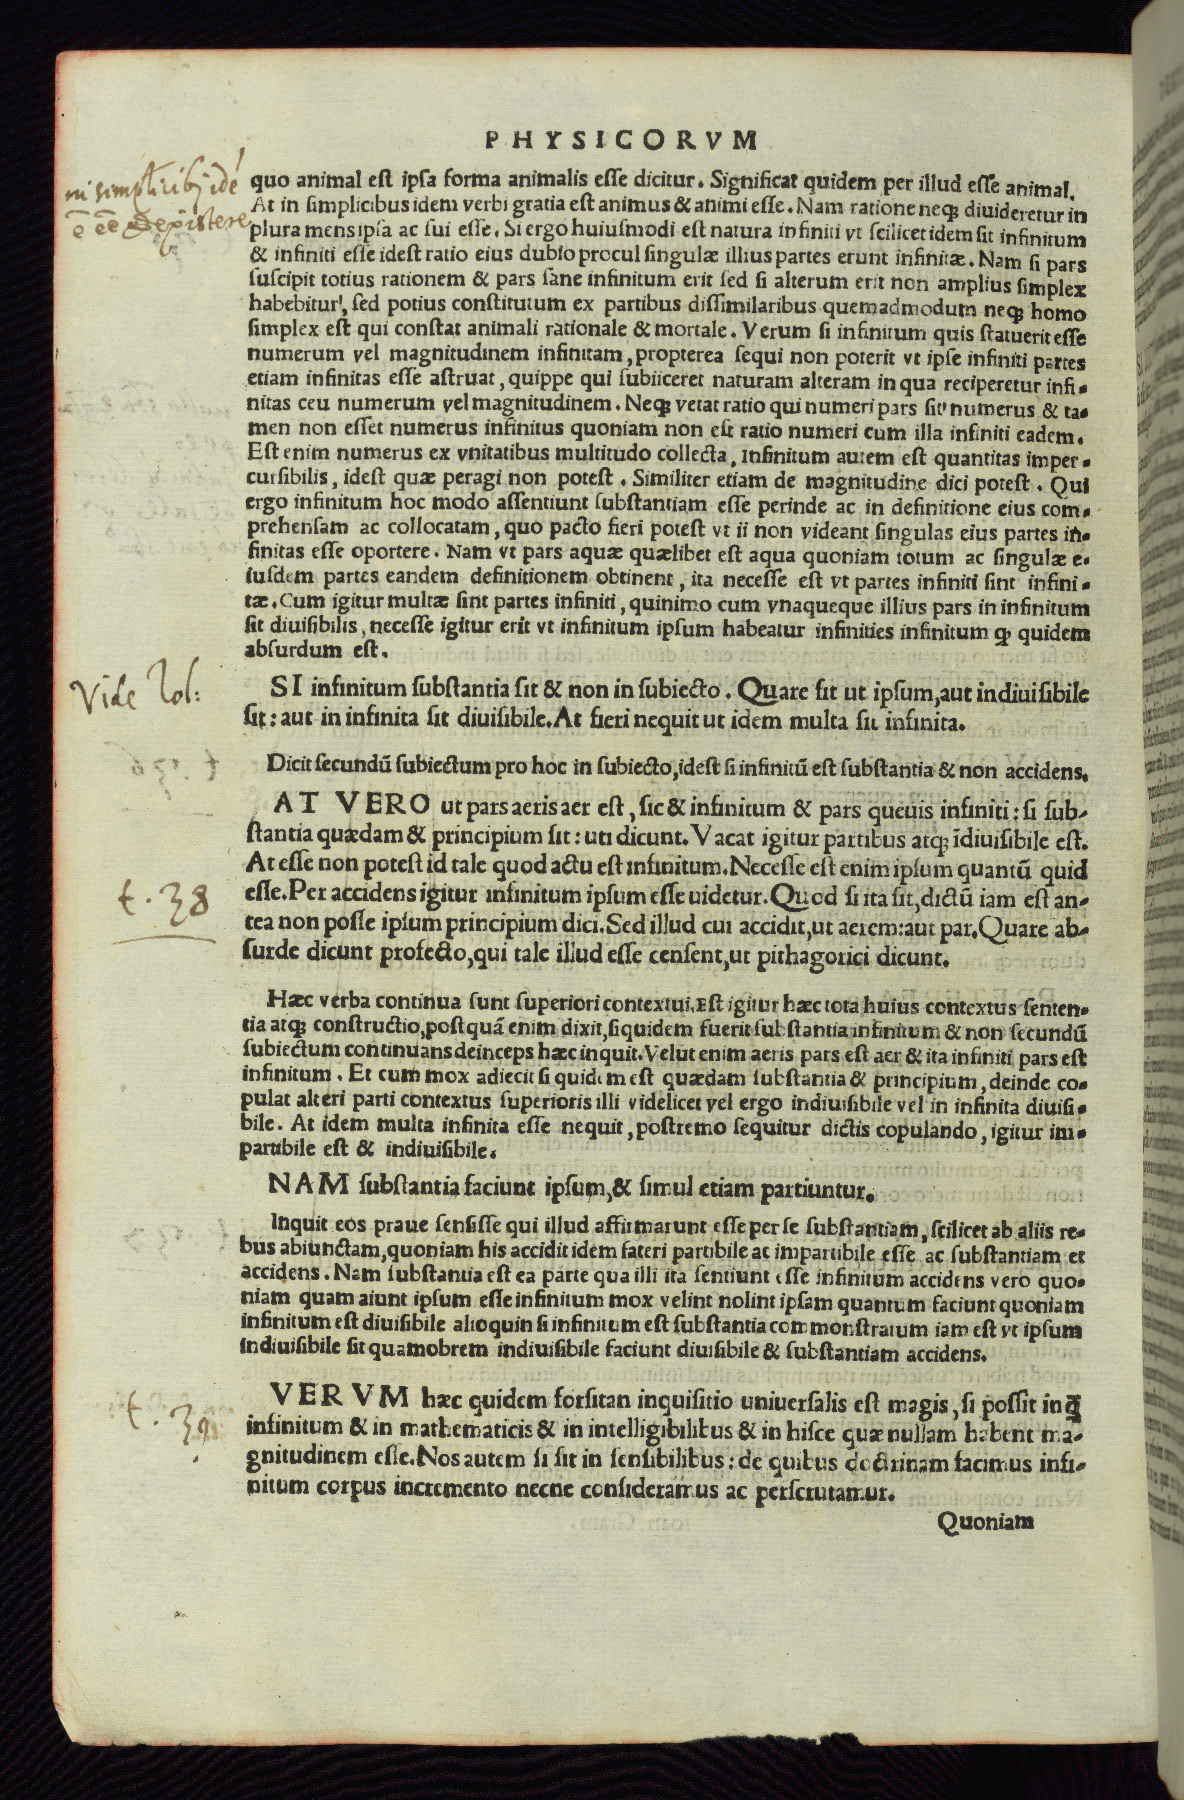 PHYSICORVM
in simplicibꝫ idē
ē eē & existere
quo animal est ipsa forma animalis esse dicitur. Significat quidem per illud esse animal.
At in simplicibus idem verbi gratia est animus & animi esse. Nam ratione neqꝫ diuideretur in
plura mens ipsa ac sui esse. Si ergo huiusmodi est natura infiniti vt scilicet idem sit infinitum
& infiniti esse idest ratio eius dubio procul singulæ illius partes erunt infinitæ. Nam si pars
suscipit totius rationem & pars sane infinitum erit sed si alterum erit non amplius simplex
habebitur, sed potius constitutum ex partibus dissimilaribus quemadmodum neqꝫ homo
simplex est qui constat animali rationale & mortale. Verum si infinitum quis statuerit esse
numerum vel magnitudinem infinitam, propterea sequi non poterit vt ipse infiniti partes
etiam infinitas esse astruat, quippe qui subiiceret naturam alteram in qua reciperetur infi-
nitas ceu numerum vel magnitudinem. Neqꝫ vetat ratio qui numeri pars sit numerus & ta-
men non esset numerus infinitus quoniam non est ratio numeri cum illa infiniti eadem.
Est enim numerus ex vnitatibus multitudo collecta, Infinitum autem est quantitas imper-
cursibilis, idest quæ peragi non potest. Similiter etiam de magnitudine dici potest. Qui
ergo infinitum hoc modo assentiunt substantiam esse perinde ac in definitione eius com-
prehensam ac collocatam, quo pacto fieri potest vt ii non videant singulas eius partes in-
finitas esse oportere. Nam vt pars aquæ quælibet est aqua quoniam totum ac singulæ e-
iusdem partes eandem definitionem obtinent, ita necesse est vt partes infiniti sint infini-
tæ. Cum igitur multæ sint partes infiniti, quinimo cum vnaqueque illius pars in infinitum
sit diuisibilis, necesse igitur erit vt infinitum ipsum habeatur infinities infinitum ꝙ quidem
absurdum est.
Vide Sol:
SI infinitum substantia sit & non in subiecto. Quare fit ut ipsum, aut indiuisibile
sit: aut in infinita sit diuisibile. At fieri nequit ut idem multa sit infinita.
Dicit secundū subiectum pro hoc in subiecto, idest si infinitū est substantia & non accidens.
AT VERO ut pars aeris aer est, sic & infinitum & pars queuis infiniti: si sub-
stantia quædam & principium sit: uti dicunt. Vacat igitur partibus atqꝫ īdiuisibile est.
At esse non potest id tale quod actu est infinitum. Necesse est enim ipsum quantū quid
t. 38
esse. Per accidens igitur infinitum ipsum esse uidetur. Quod si ita sit, dictū iam est an-
tea non posse ipsum principium dici. Sed illud cui accidit, ut aerem: aut par. Quare ab-
surde dicunt profecto, qui tale illud esse censent, ut pithagorici dicunt.
Hæc verba continua sunt superiori contextui. Est igitur hæc tota huius contextus senten-
tia atqꝫ constructio, postquā enim dixit, siquidem fuerit substantia infinitum & non secundū
subiectum continuans deinceps hæc inquit. Velut enim aeris pars est aer & ita infiniti pars est
infinitum. Et cum mox adiecit si quidem est quædam substantia & principium, deinde co-
pulat alteri parti contextus superioris illi videlicet vel ergo indiuisibile vel in infinita diuisi-
bile. At idem multa infinita esse nequit, postremo sequitur dictis copulando, igitur im-
partibile est & indiuisibile.
NAM substantia faciunt ipsum, & simul etiam partiuntur.
Inquit eos praue sensisse qui illud affirmarunt esse per se substantiam, scilicet ab aliis re-
bus abiunctam, quoniam his accidit idem fateri partibile ac impartibile esse ac substantiam et
accidens. Nam substantia est ea parte qua illi ita sentiunt esse infinitum accidens vero quo-
niam quam aiunt ipsum esse infinitum mox velint nolint ipsam quantum faciunt quoniam
infinitum est diuisibile alioquin si infinitum est substantia commonstratum iam est vt ipsum
indiuisibile sit quamobrem indiuisibile faciunt diuisibile & substantiam accidens.
t. 39.
VERVM hæc quidem forsitan inquisitio uniuersalis est magis, si possit inq̄
infinitum & in mathematicis & in intelligibilibus & in hisce quæ nullam habent ma-
gnitudinem esse. Nos autem si sit in sensibilibus: de quibus doctrinam facimus infi-
nitum corpus incremento necne consideramus ac perscrutamur.
Quoniam